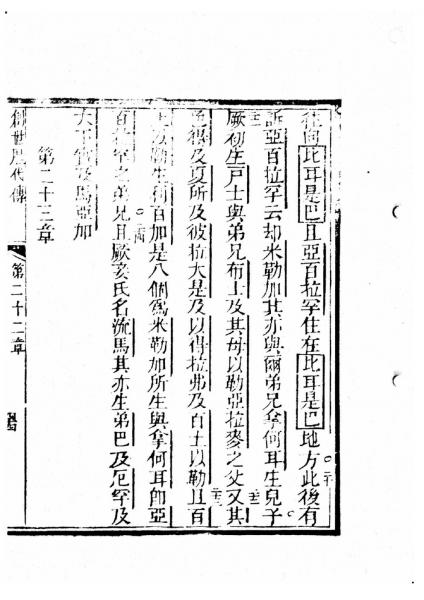 往向比耳是巴且亞百拉罕住在比耳是巴地方此後有
訴亞百拉罕云却米勒加其亦與爾弟兄拿何耳生兒子
厥初生戸士與弟兄布士及其母以勒亞拉麥之父又其
得及夏所及彼拉大是及以得拉弗及百土以勒且百
土以勒生利百加是八個爲米勒加所生與拿何耳即亞
百拉罕之弟兄且厥妾氏名流馬其亦生弟巴及厄罕及
大下實及馬亞加
第二十三章
創世歷代傳
第二十二章